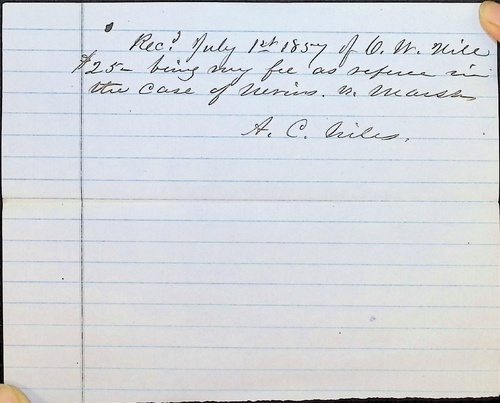 Rec.d July 1st 1857 of O. W. Hill
$25 - being my fee as referee in
the Case of Nevins. vs. Marsh
A. C. Niles.